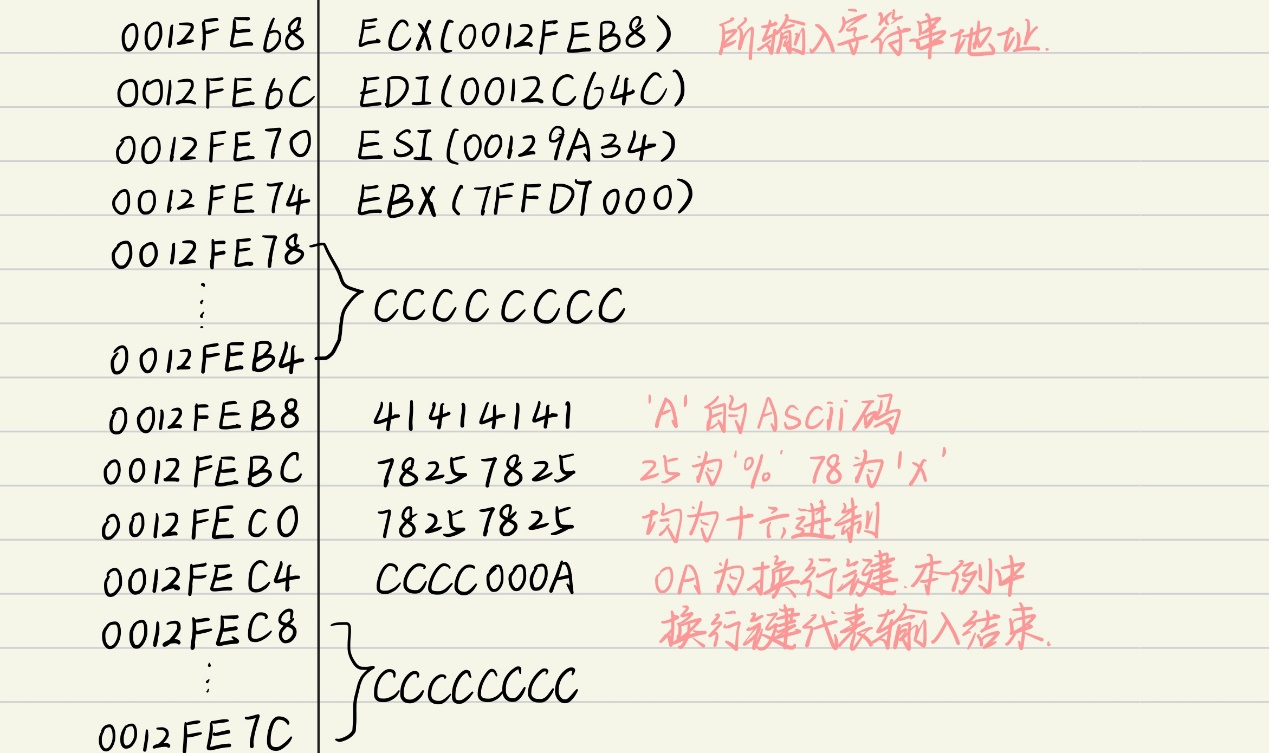 0012FE68 ECX(0012FEB8) 所输入字符串地址.
0012FE6C EDI(0012C64C)
0012FE70 ESI(00129A34)
0012FE74 EBX(7FFD7000)
0012FE78
⋮ CCCCCCCC
0012FEB4
0012FEB8 41414141 'A'的Ascii码
0012FEBC 78257825 25为'%' 78为'x'
0012FEC0 78257825 均为十六进制
0012FEC4 CCCC000A 0A为换行键.本例中
0012FEC8 换行键代表输入结束.
⋮ CCCCCCCC
0012FE7C